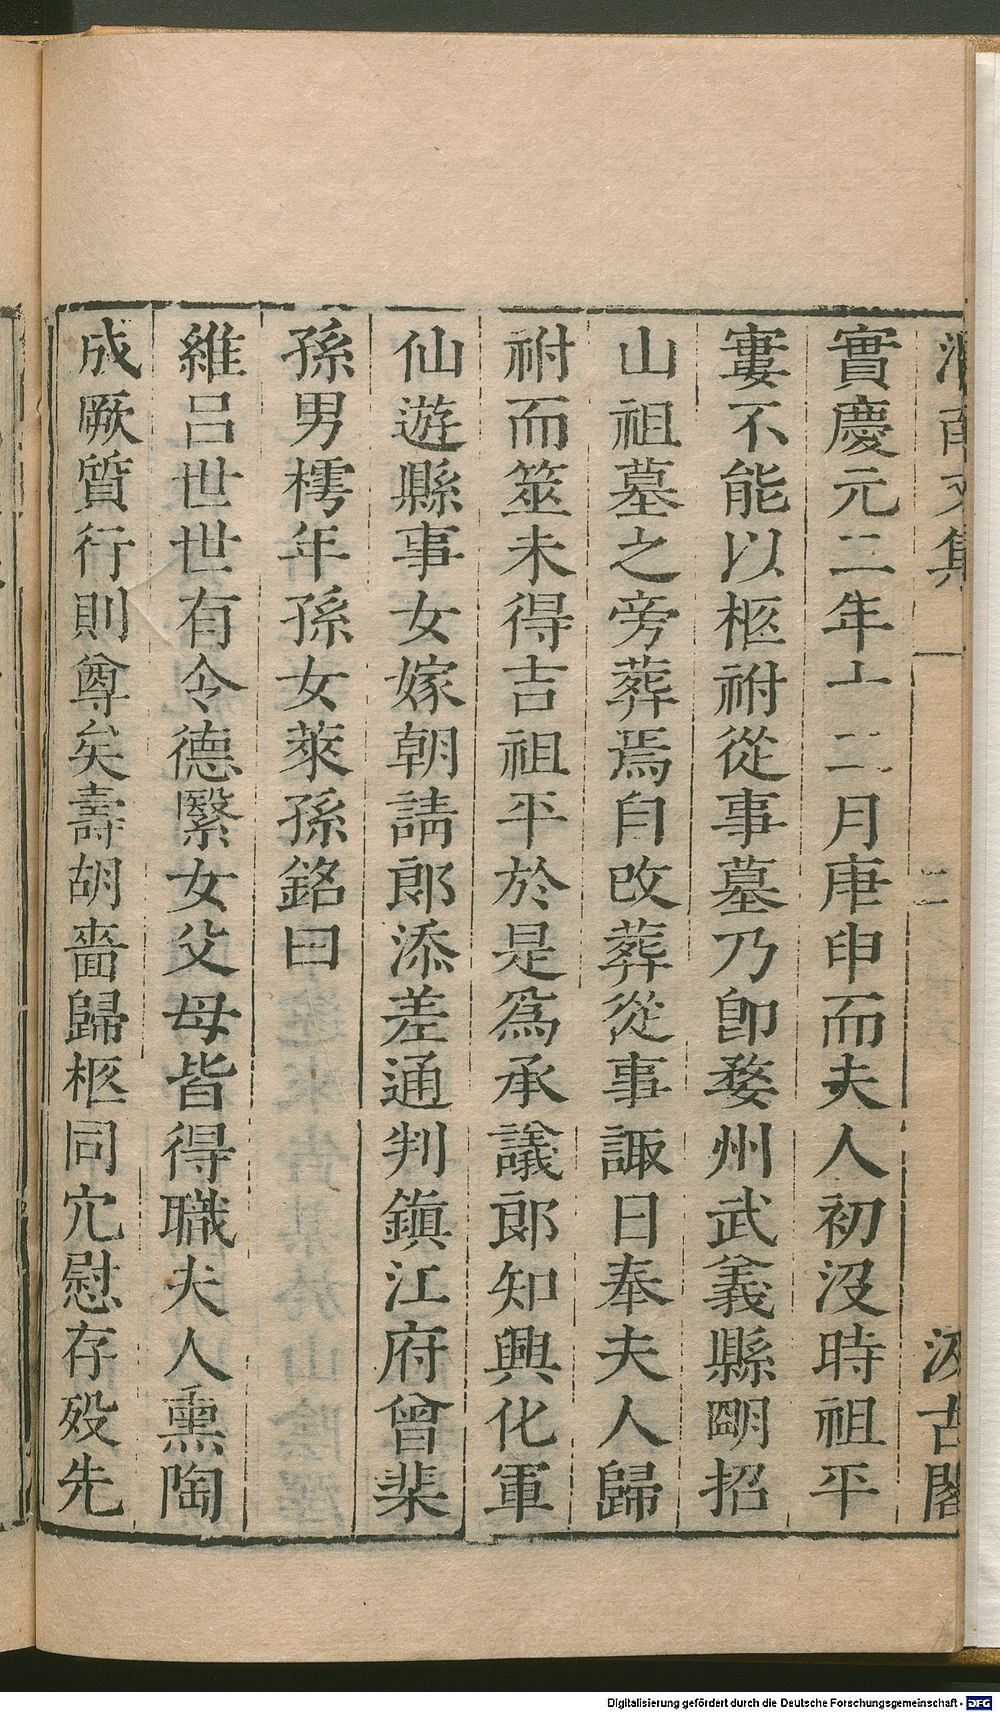 渭南文集
二
汲古閣
實慶元二年十二月庚申而夫人初沒時祖平
寠不能以柩祔從事墓乃卽婺州武義縣明招
山祖墓之旁葬焉自改葬從事諏日奉夫人歸
祔而筮未得吉祖平於是爲承議郎知興化軍
仙遊縣事女嫁朝請郎添差通判鎮江府曾棐
孫男樗年孫女萊孫銘曰
維呂世世有令德繄女父母皆得職夫人熏陶
成厥質行則尊矣壽胡嗇歸柩同穴慰存歿先
Digitalisierung gefördert durch die Deutsche Forschungsgemeinschaft - DFG